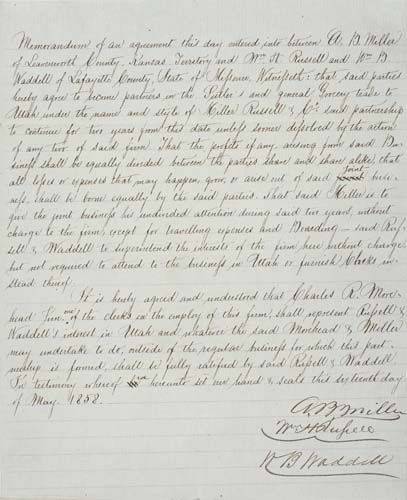 Memorandum of an agreement this day entered into between A. B. Miller
of Leavenworth County, Kansas Territory and Wm H Russell and Wm B
Waddell of Lafayette County, State of Missouri, Witnesseth: that said parties
hereby agree to become partners in the Sutler's and general Grocery trade to
Utah under the name and style of Miller Russell & Co. said partnership
to continue for two years from this date unless sooner dissolved by the action
of any two of said firm. That the profits if any, arising from said Bu-
siness shall be equally divided between the parties share and share alike, that
all loses or expenses that may happen, grow, or arise out of said joint busi-
ness, shall be borne equally by the said parties. That said Miller is to
give the joint business his undivided attention during said two years, without
charge to the firm, except for travelling expenses and Boarding — said Rus-
sell & Waddell to superintend the interests of the firm here without charge
but not required to attend to the business in Utah or furnish Clerks in-
stead thereof.
It is hereby agreed and understood that Charles R. More-
head Jun. one of the clerks in the employ of this firm, shall represent Russell &
Waddell's interest in Utah and whatever the said Morehead & Miller
may undertake to do, outside of the regular business for which this part-
nership is formed, shall be fully ratified by said Russell & Waddell
In testimony whereof we hereunto set our hands & seals this sixteenth day
of May. 1858.
A. B. Miller
Wm H Russell
W B Waddell